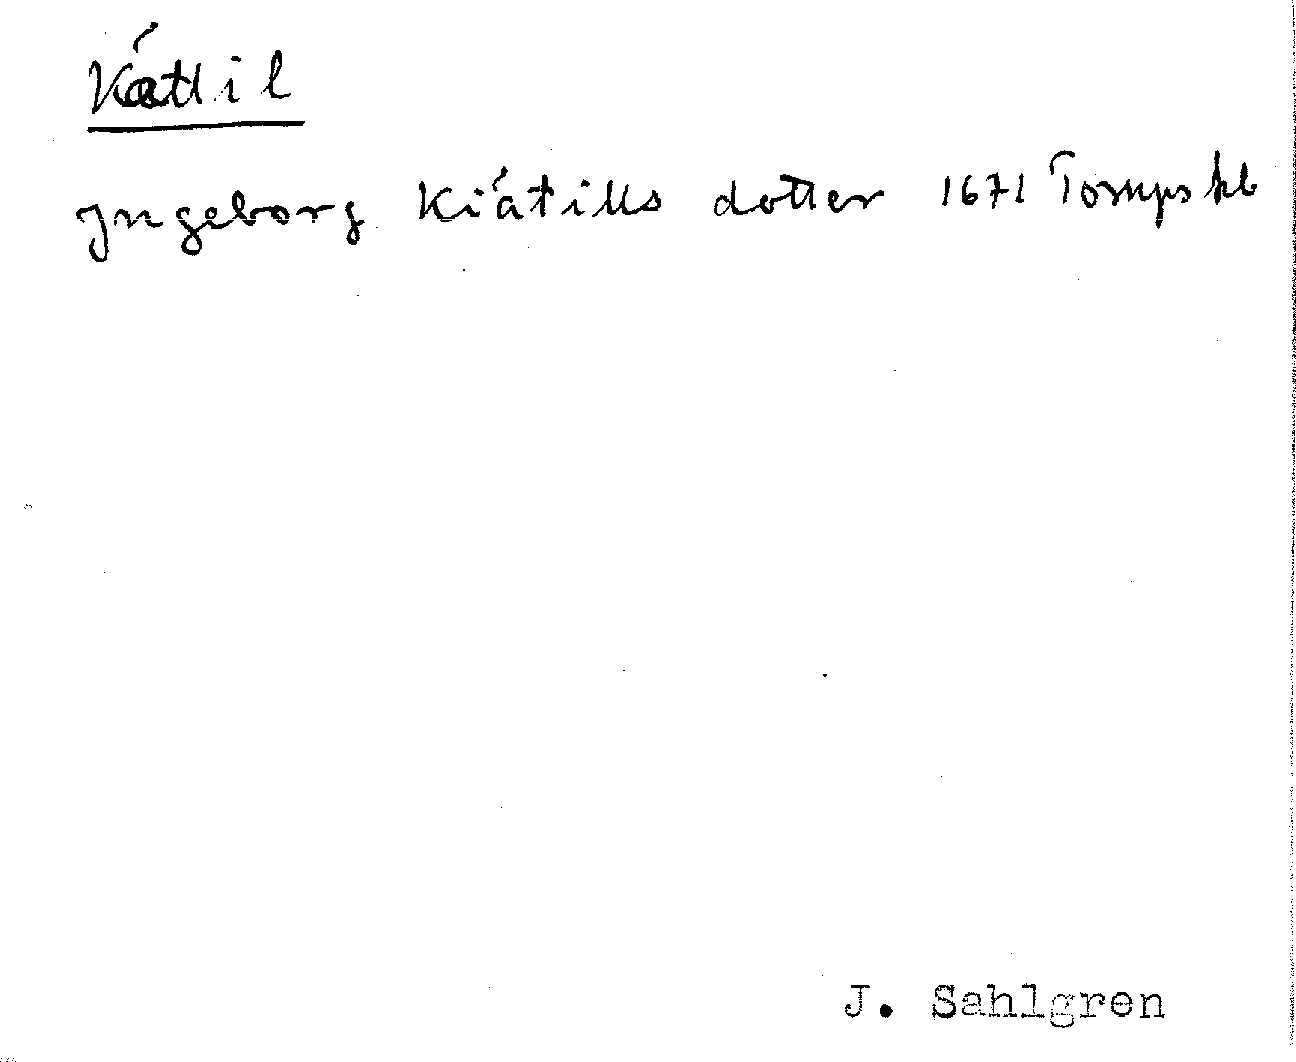 Káttil
Jngeborg Kiátills dotter 1671 Torups kb
J. Sahlgren